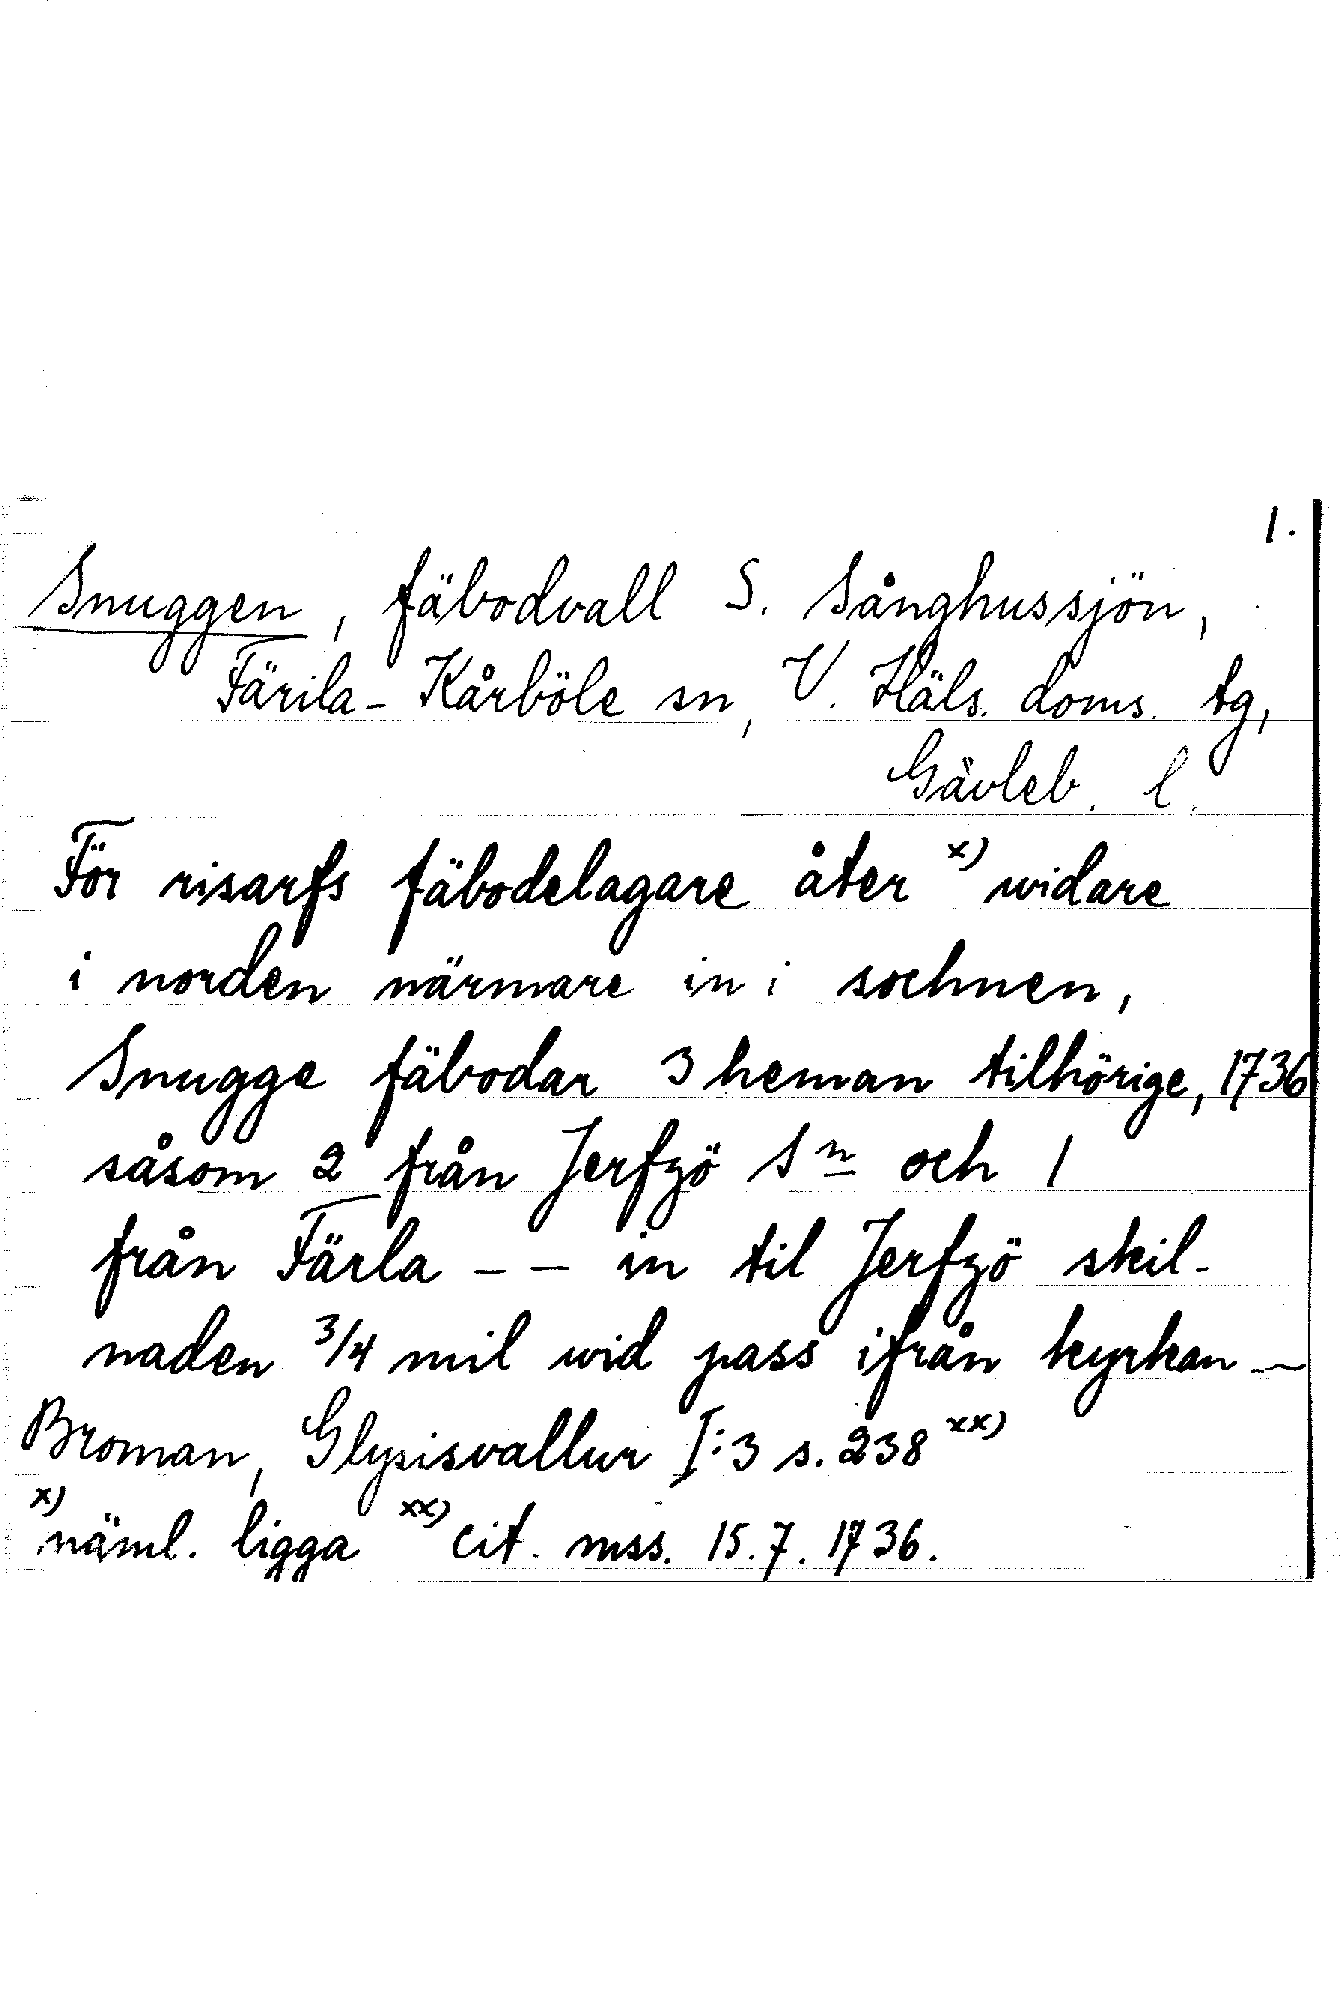 1.
Snuggen, fäbodvall S. Sånghussjön,
Färila-Kårböle sn, V. Häls. doms. tg,
Gävleb. l.
För risarfs fäbodelagare åter x) widare
i norden närmare in i sochnen,
Snugge fäbodar 3 heman tilhörige, 1736
såsom 2 från Jerfzö Sn och 1
från Färla - - in til Jerfzö skil-
naden 3/4 mil wid pass ifrån kyrkan -
Broman, Glysisvallur I:3 s. 238 xx)
x) näml. ligga xx) cit. mss. 15.7.1736.